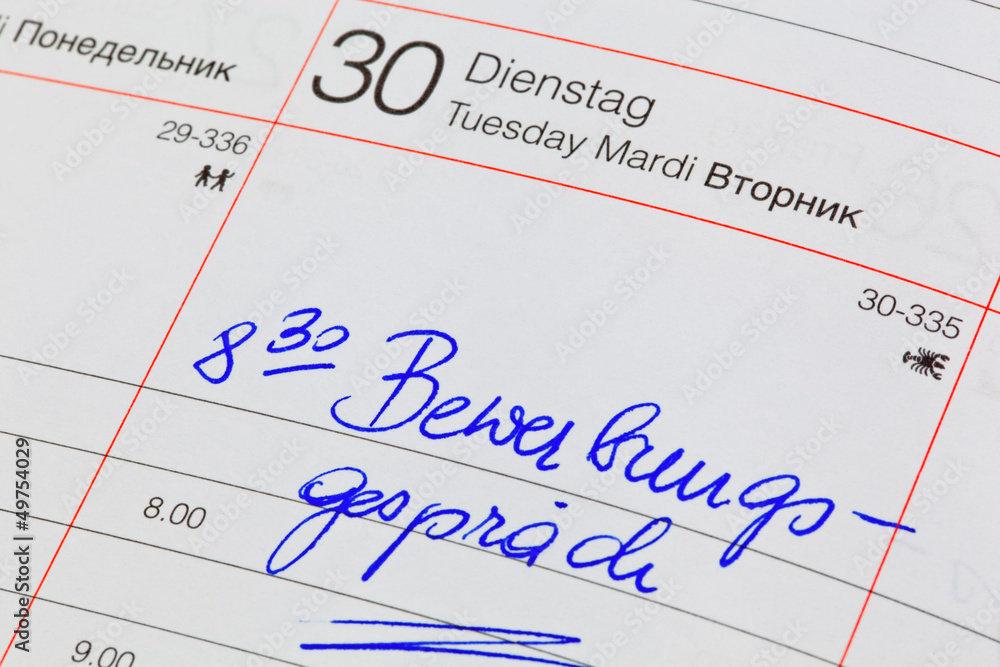 i Понедельник
29-336
30 Dienstag
Tuesday Mardi Вторник
30-335
8 30 Bewerbungs-
gespräch
8.00
9.00
Adobe Stock | #49754029